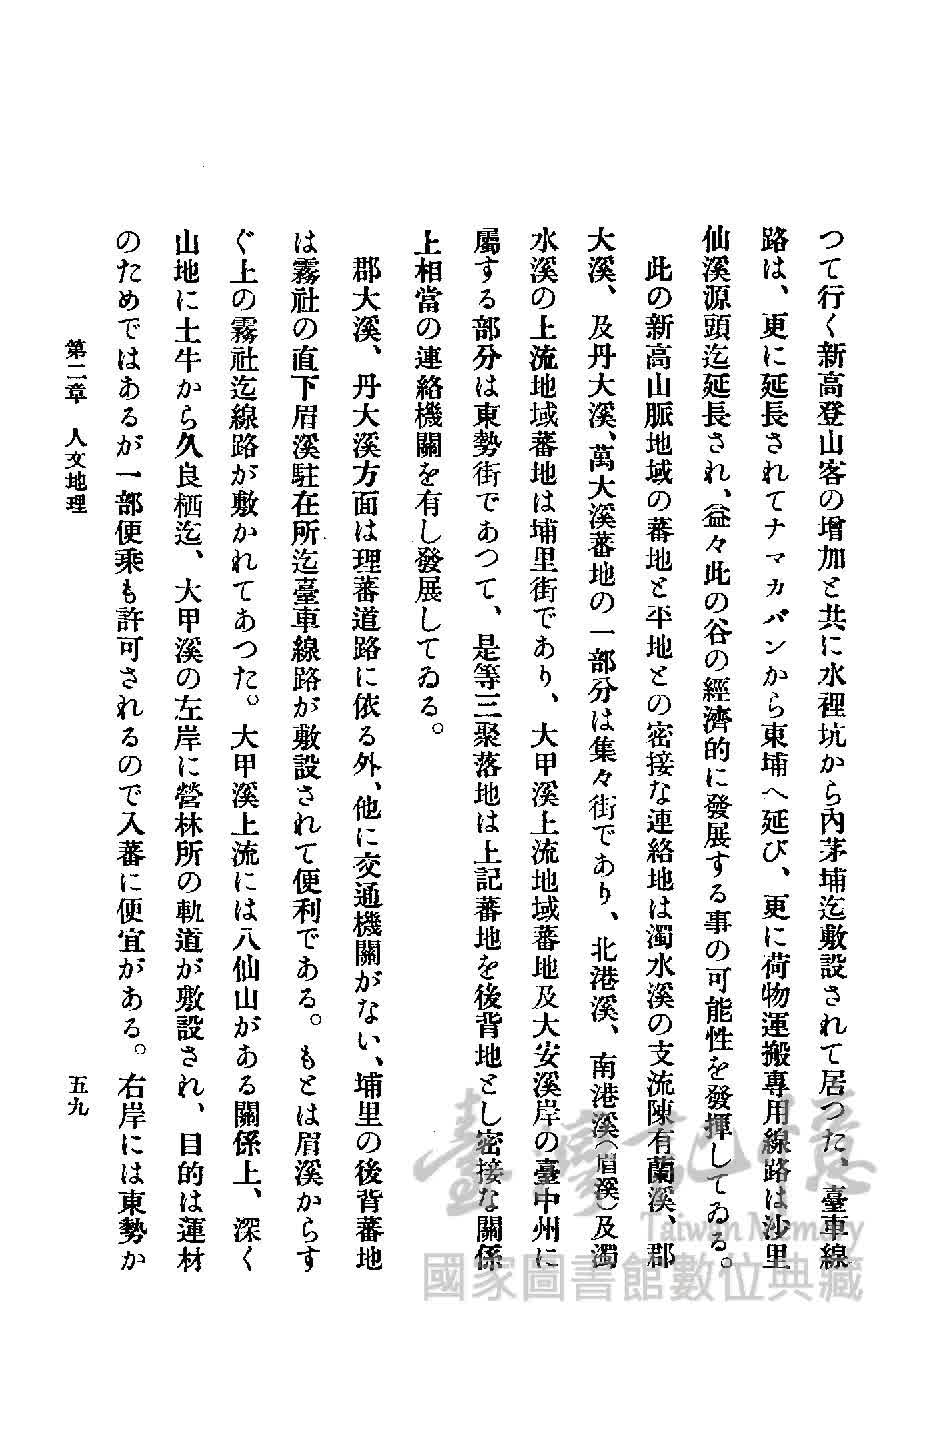 つて行く新高登山客の增加と共に水裡坑から內茅埔迄敷設されて居つた、臺車線
路は、更に延長されてナマカバンから東埔へ延び、更に荷物運搬專用線路は沙里
仙溪源頭迄延長され、益々此の谷の經濟的に發展する事の可能性を發揮してゐる。
此の新高山脈地域の蕃地と平地との密接な連絡地は濁水溪の支流陳有蘭溪、郡
大溪、及丹大溪、萬大溪蕃地の一部分は集々街であり、北港溪、南港溪(眉溪)及濁
水溪の上流地域蕃地は埔里街であり、大甲溪上流地域蕃地及大安溪岸の臺中州に
屬する部分は東勢街であつて、是等三聚落地は上記蕃地を後背地とし密接な關係
上相當の連絡機關を有し發展してゐる。
郡大溪、丹大溪方面は理蕃道路に依る外、他に交通機關がない、埔里の後背蕃地
は霧社の直下眉溪駐在所迄臺車線路が敷設されて便利である。もとは眉溪からす
ぐ上の霧社迄線路が敷かれてあつた。大甲溪上流には八仙山がある關係上、深く
山地に土牛から久良栖迄、大甲溪の左岸に營林所の軌道が敷設され、目的は運材
のためではあるが一部便乘も許可されるので入蕃に便宜がある。右岸には東勢か
第二章 人文地理
五九
臺灣記憶
Taiwan Memory
國家圖書館數位典藏